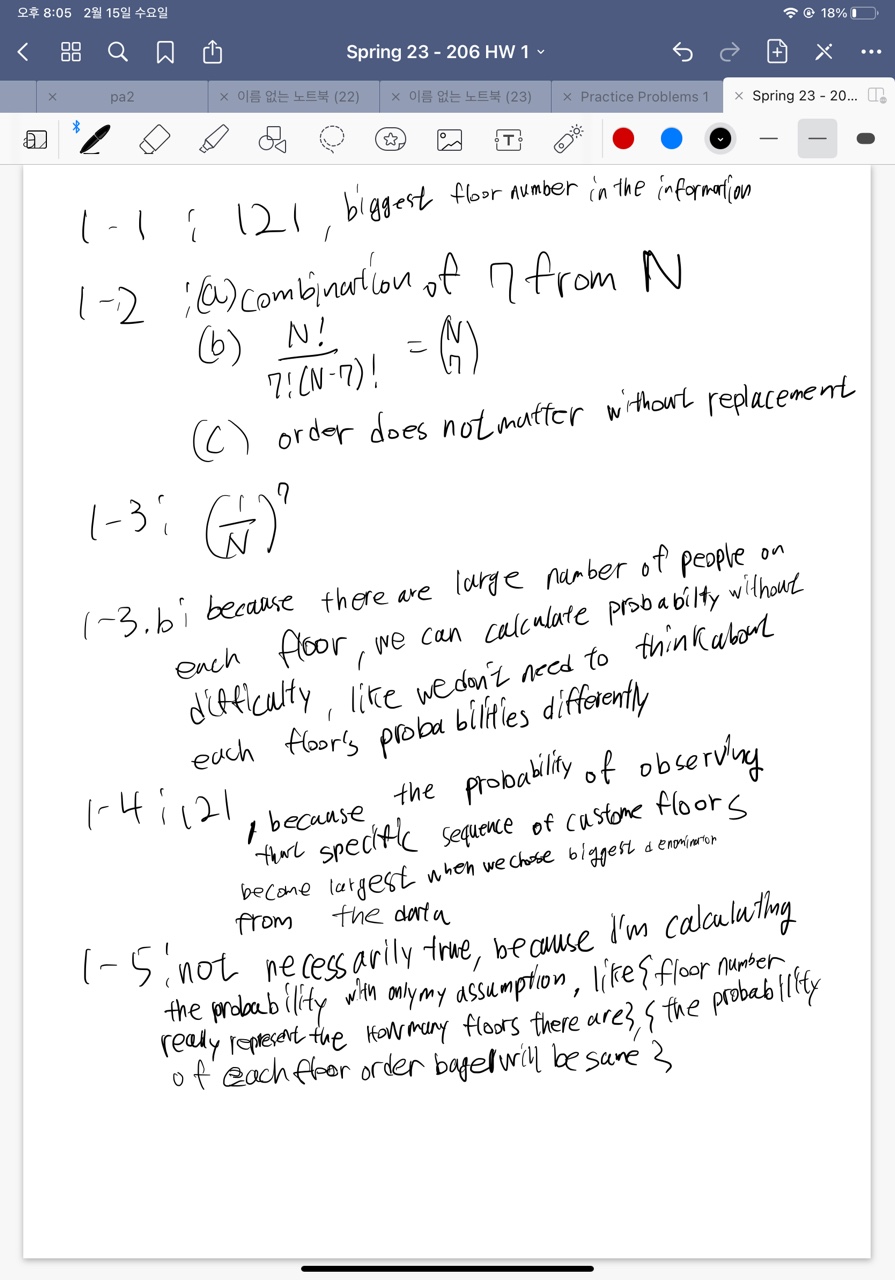 오후 8:05 2월 15일 수요일
18%
Spring 23 - 206 HW 1
pa2
이름 없는 노트북 (22)
이름 없는 노트북 (23)
Practice Problems 1
Spring 23 - 20...
T
1-1 ; 121, biggest floor number in the information
1-2 ;(a) combination of 7 from N
(b) N! / 7!(N-7)! = (N 7)
(c) order does not matter without replacement
1-3; (1/N)^7
1-3.b; because there are large number of people on
each floor, we can calculate probabilty without
difficulty, like we don't need to think about
each floor's probabilities differently
1-4 ; 121, because the probability of observing
that specific sequence of custome floors
become largest when we chose biggest denominator
from the data
1-5; not necessarily true, because I'm calculating
the probability with only my assumption, like { floor number
really represent the How many floors there are}, { the probability
of each floor order bagel will be same }